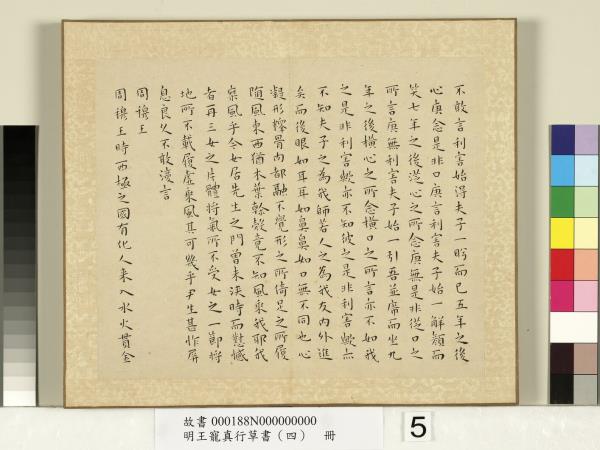 不敢言利害始得夫子一眄而已五年之後
心庚念是非口庚言利害夫子始一解顏而
笑七年之後從心之所念庚無是非從口之
所言庚無利害夫子始一引吾並席而坐九
年之後橫心之所念橫口之所言亦不知我
之是非利害歟亦不知彼之是非利害歟亦
不知夫子之為我師若人之為我友內外進
矣而後眼如耳耳如鼻鼻如口無不同也心
凝形釋骨肉都融不覺形之所倚足之所履
隨風東西猶木葉幹殼竟不知風乘我耶我
乘風乎今女居先生之門曾未浹時而懟憾
者再三女之片體將氣所不受女之一節將
地所不載履虛乘風其可幾乎尹生甚怍屏
息良久不敢復言
周穆王
周穆王時西極之國有化人來入水火貫金
故書 000188N000000000
明王寵真行草書（四） 冊
5